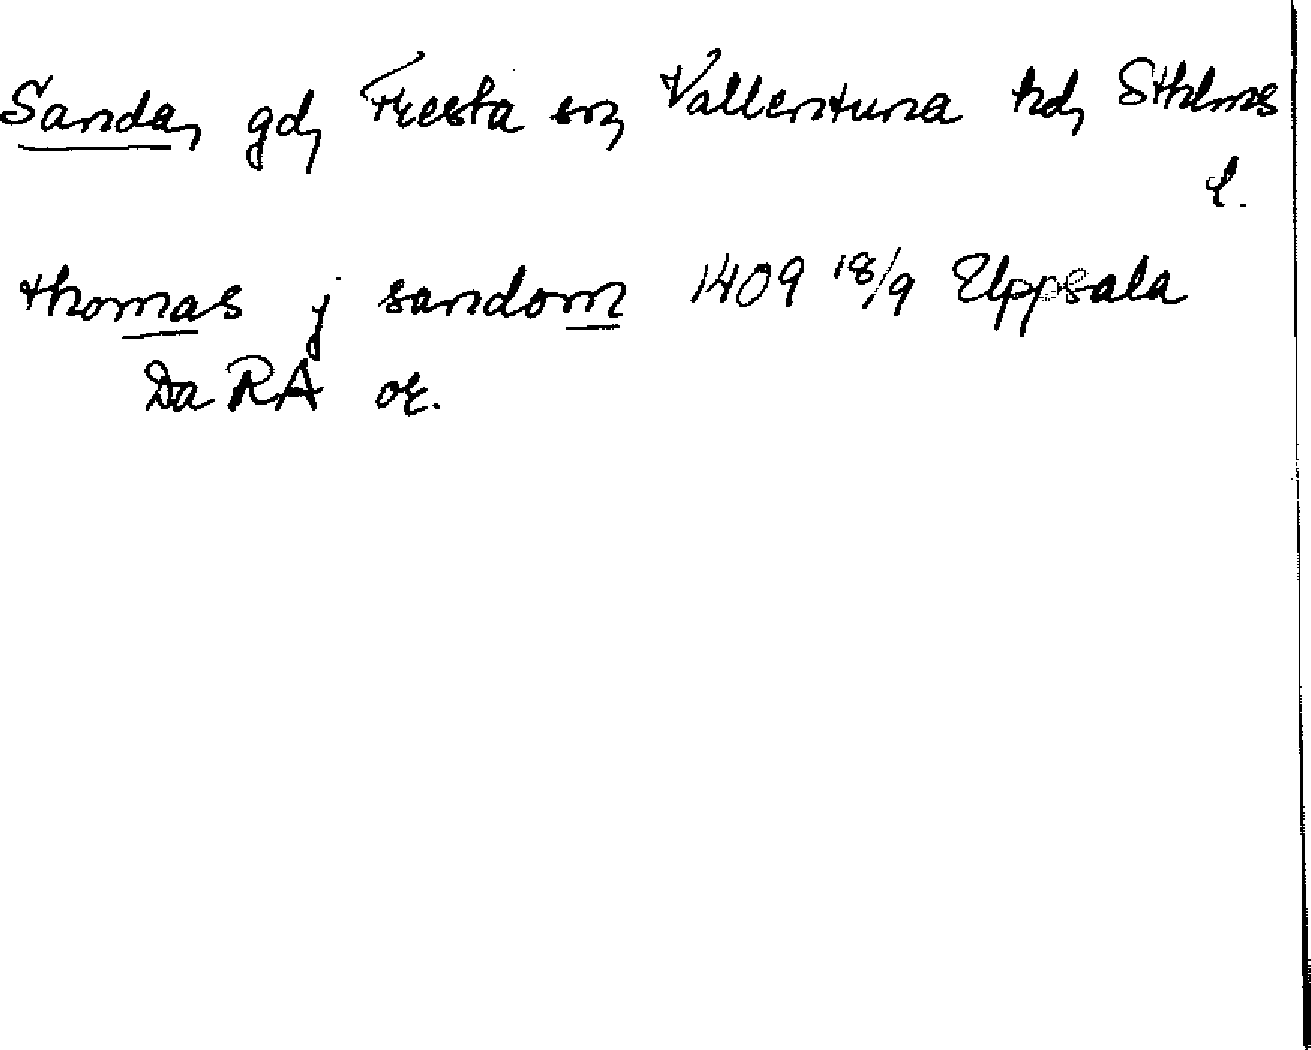 Sanda, gd, Fresta sn, Vallentuna hd, Sthlms
l.
thomas j sandom 1409 18/9 Uppsala
Da RA or.